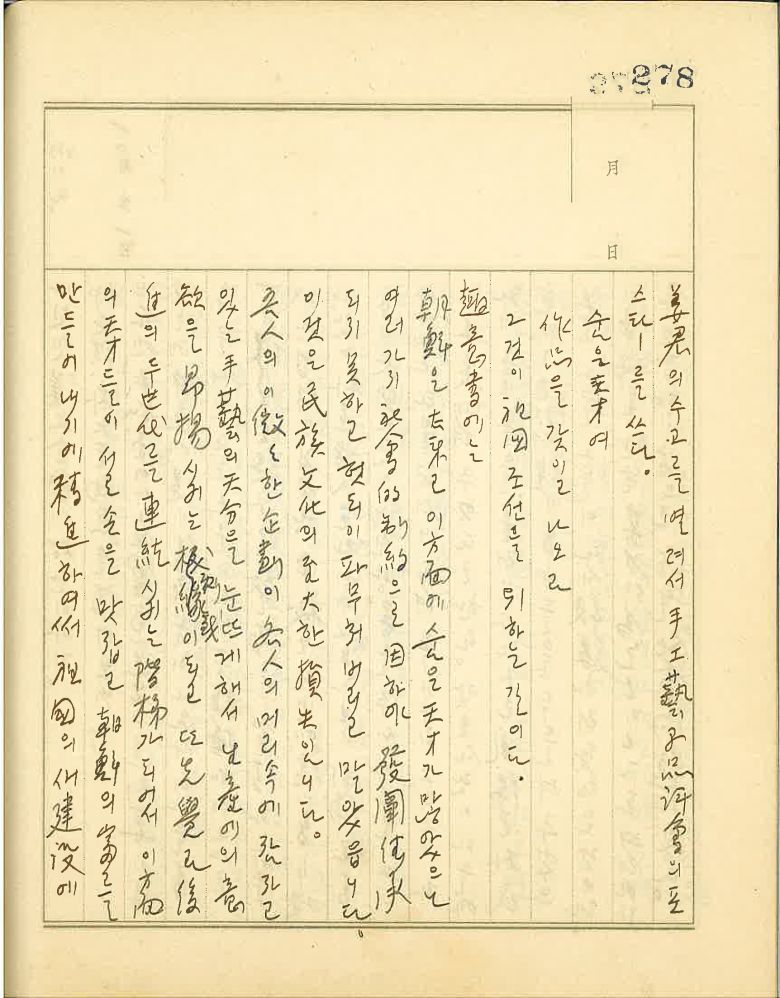 278
月 日
姜君의 수고를 열려서 手工藝品評會의 포
스타ー를 쓰다.
숨은 天才여
作品을 갖이고 나오라
그것이 祖國 조선을 위하는 길이다.
趣意書에는
朝鮮은 古來로 이 方面에 숨은 天才가 많았으나
여러 가지 社會的 制約으로 因하야 發闡傳承
되지 못하고 헛되이 파무처 버리고 말았읍니다
이것은 民族文化의 至大한 損失입니다。
吾人의 이 微々한 企劃이 各人의 머리속에 잠자고
있는 手藝의 天分을 눈뜨게 해서 生產에의 意
欲을 昻揚시키는 機緣이 되고 또 先覺과 後
進의 두 世代를 連結시키는 階梯가 되어서 이 方面
의 天才들이 서로 손을 맛잡고 朝鮮의 富를
만들어 내기에 積進하여써 祖國의 새 建設에